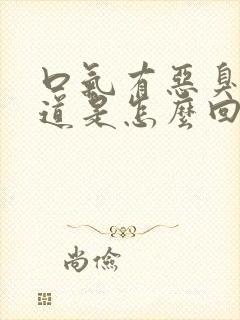 口氣有惡臭
道是怎麼回
尚儉